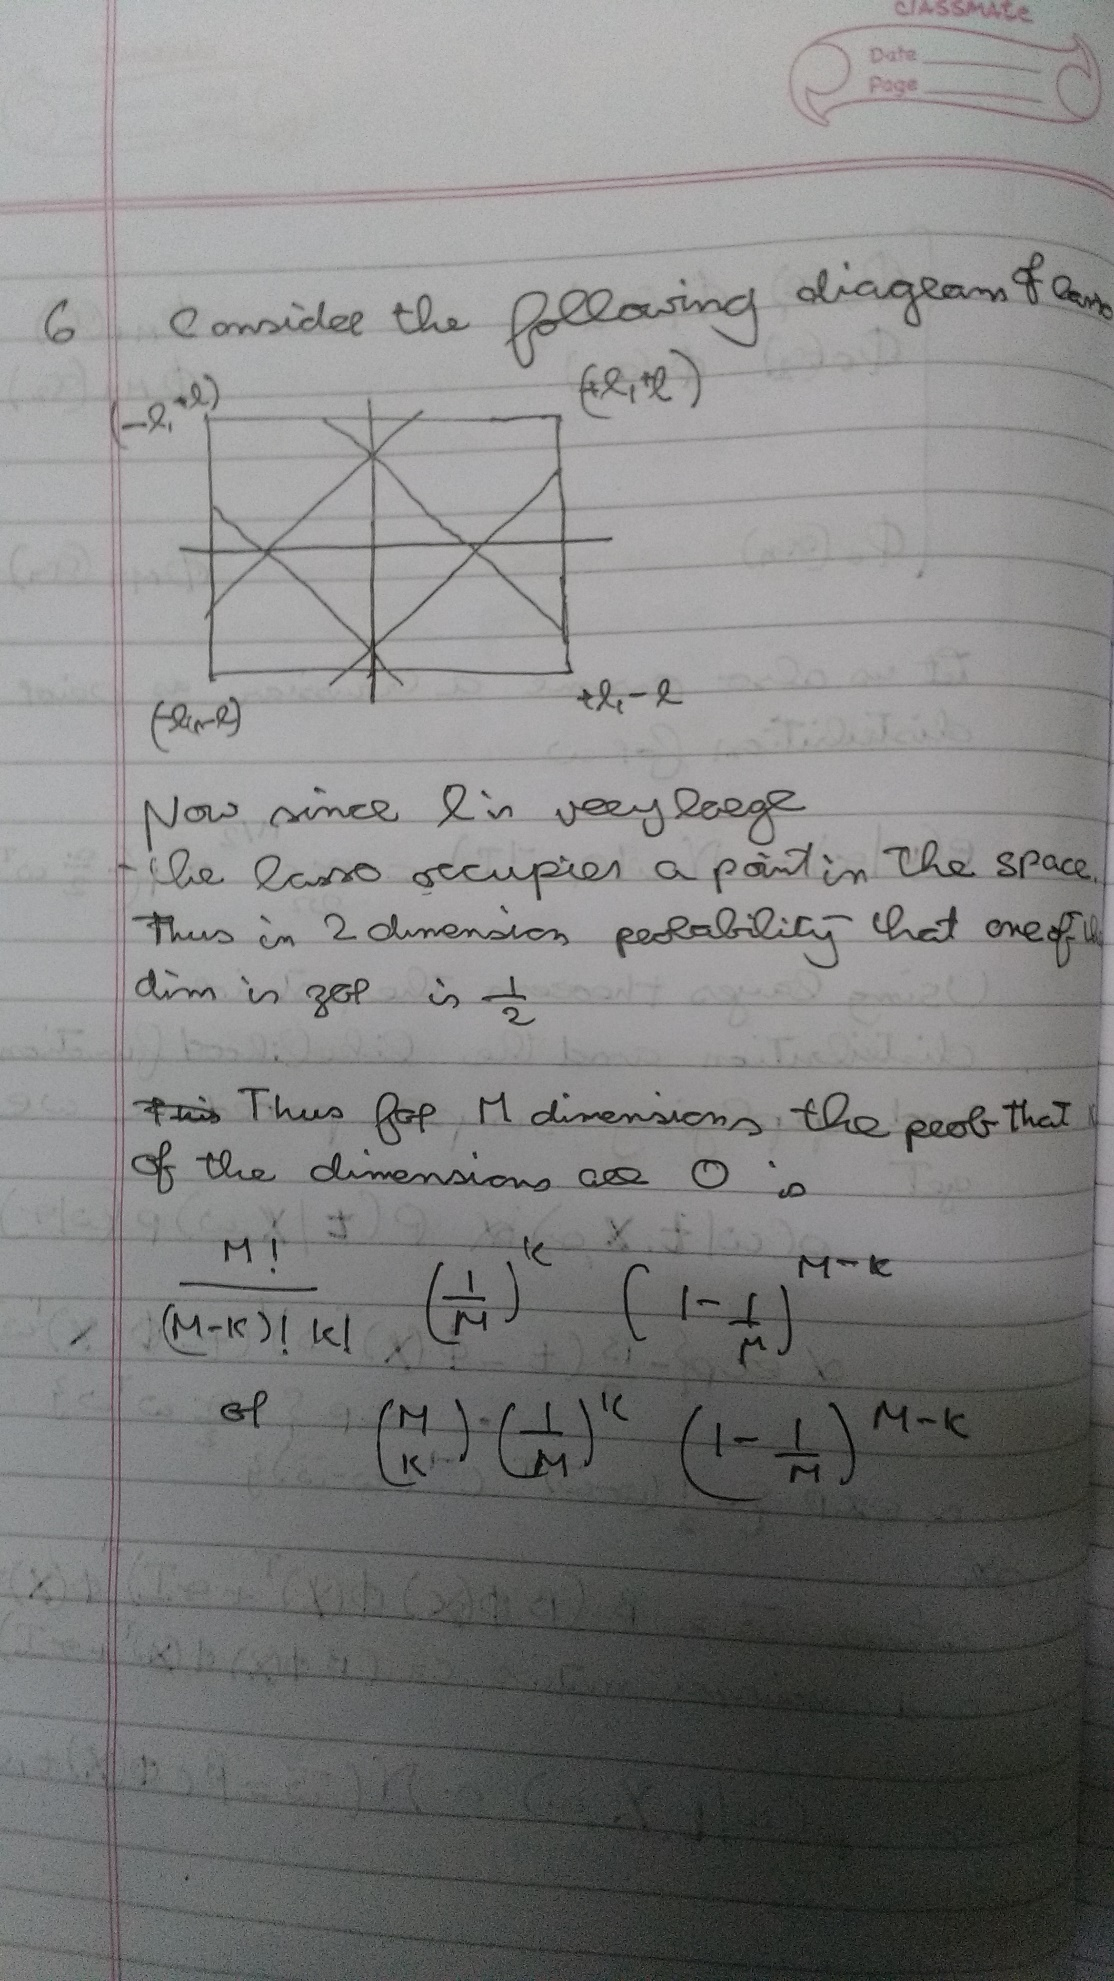 classmate
Date
Page
6 Consider the following diagram of lasso
(-l, +l)
(+l, +l)
(-l, -l)
+l, -l
Now since l is very large
the lasso occupies a point in the space.
Thus in 2 dimension probability that one of the
dim is zer is 1/2
This Thus for M dimensions the prob that
of the dimensions are 0 is
M! / (M-K)! K! (1/M)^K (1 - 1/M)^M-K
or (M K) · (1/M)^K (1 - 1/M)^M-K